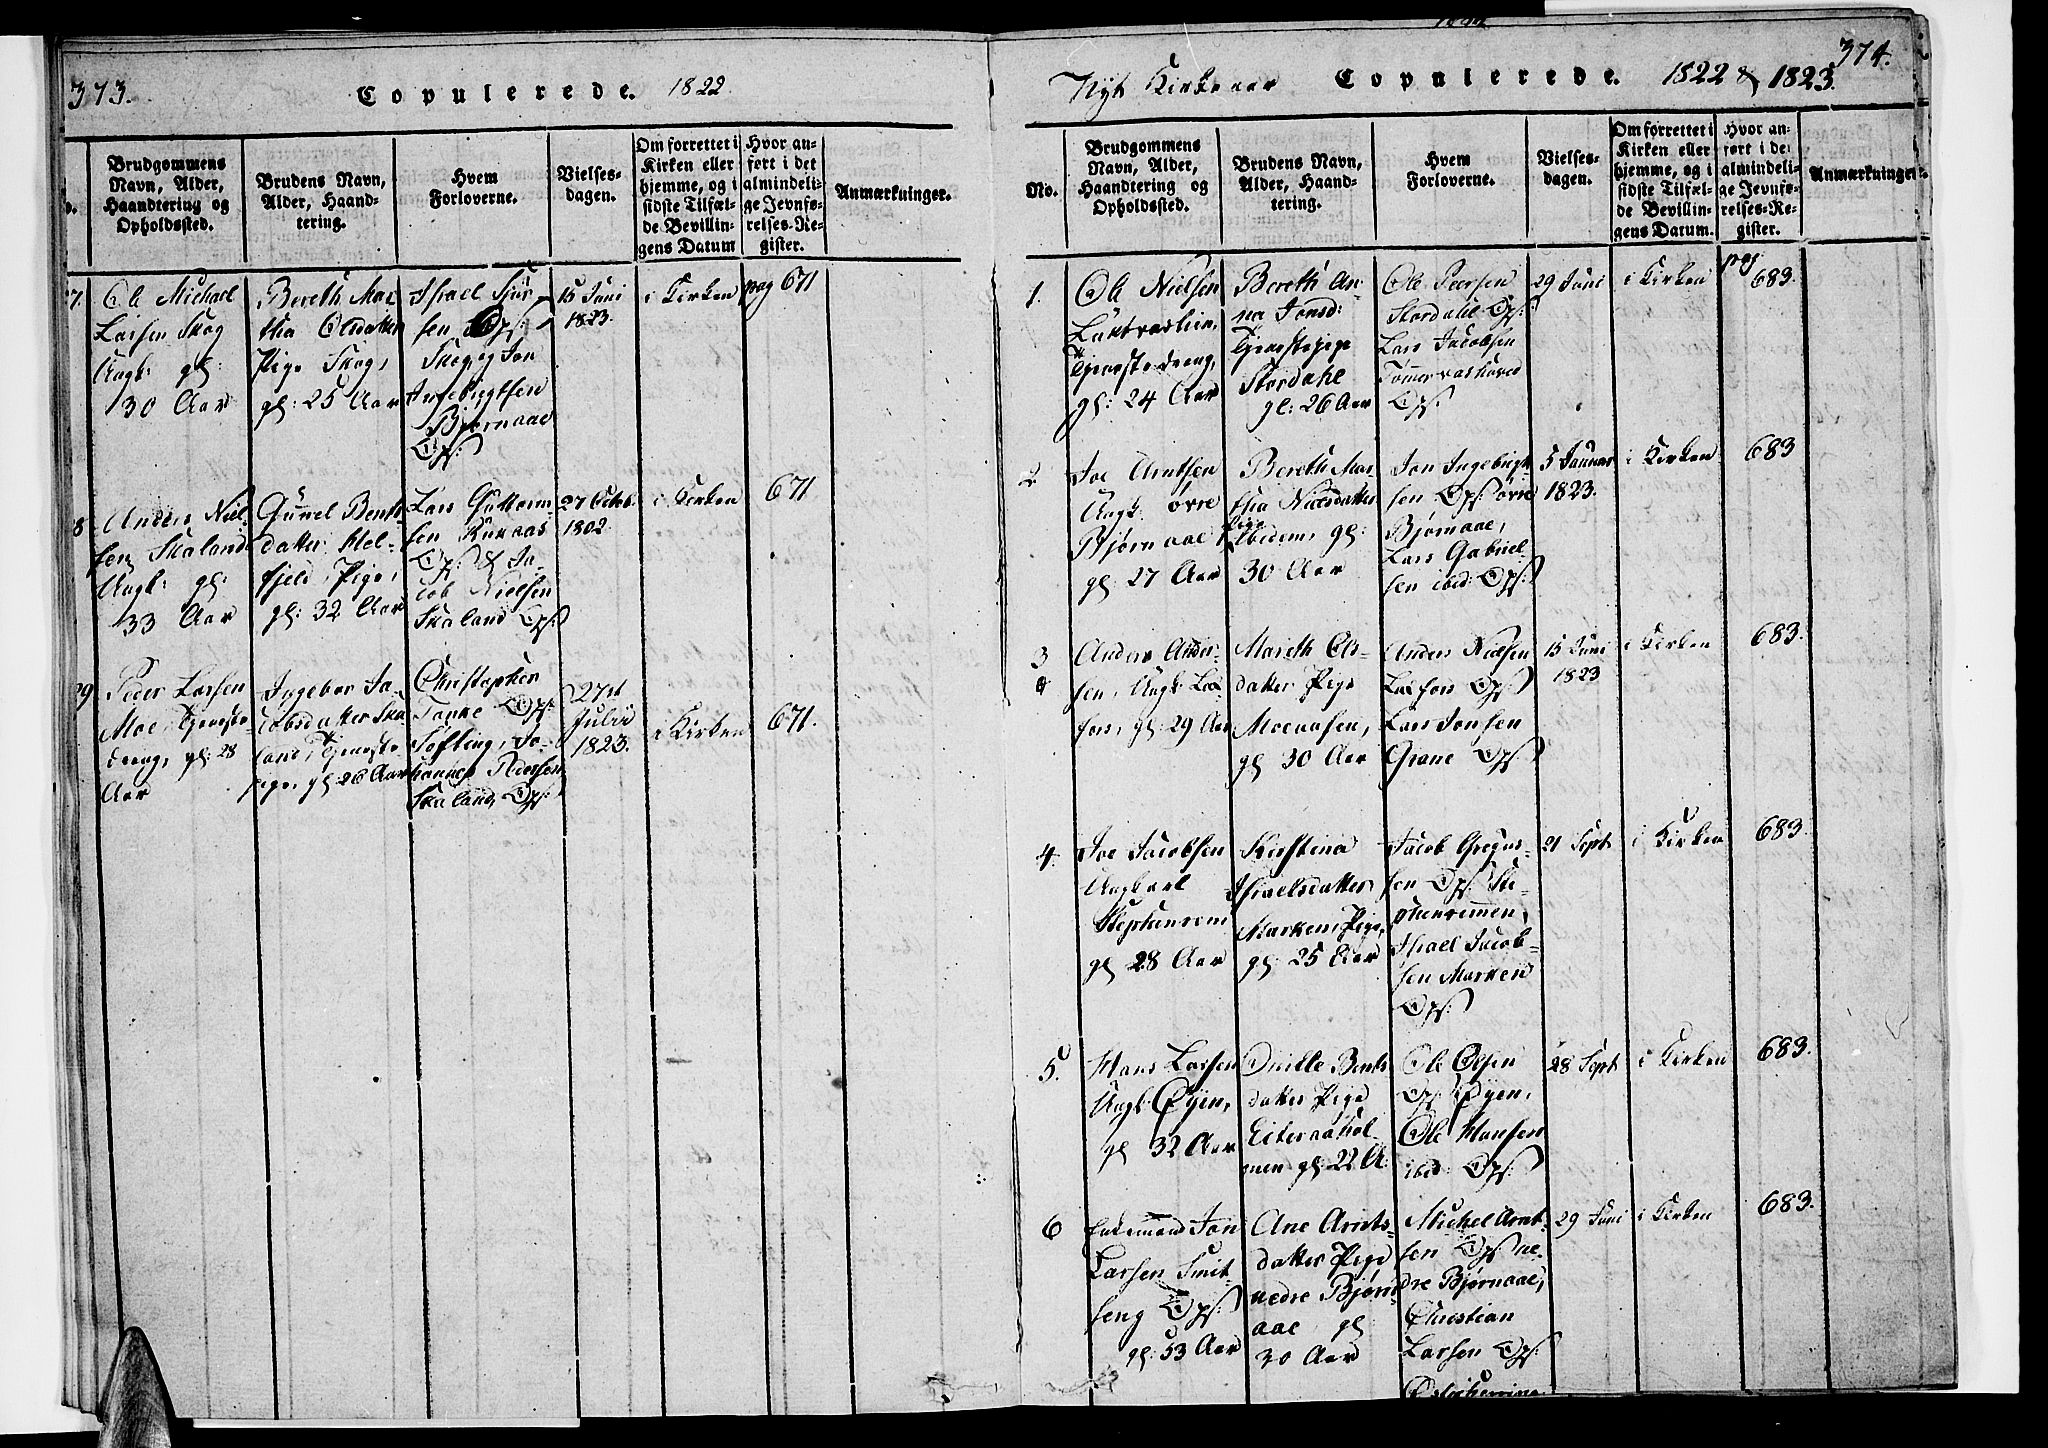 373.
Copulerede. 1822.
Brudgommens Navn, Alder, Haandtering og Opholdssted.
Brudens Navn, Alder, Haandtering.
Hvem Forloverne.
Vielsesdagen.
Om forrettet i Kirken eller hjemme, og i sidste Tilfælde Bevillingens Datum
Hvor anført i det almindelige Jevnførelses-Register.
Anmærkninger.
27.
Ole Michael
Larsen Skog
Ungk: gl:
30 Aar
Bereth Mar
tha Olsdatter
Pige Skog,
gl: 25 Aar
Israel Sjur
sen Ops:
Skog, Jon
Ingebrigtsen
Bjørnaae
Ops:
15 Juni
1823.
i Kirken
pag 671
28
Anders Niel
sen Skaland
Ungk: gl:
33 Aar
Gunel Bents
datter Kel
fjeld, Pige,
gl: 32 Aar
Lars Guttorm
sen
Ops: & Ja-
cob Nielsen
Skaland Ops:
27 Octob.
1802.
i Kirken
671
29
Peder Larsen
Moe, Tjeneste
dreng, gl: 28
Aar
Ingebor Ja-
cobsdatter Ska
land, Tjeneste
pige, gl 26 Aar
Christopher
Tanke Ops:
Søfting, Jo-
hannes Pedersen
Skaland, Ops:
27st
Julii
1823.
i Kirken
671.
374.
Nyt Kirkeaar Copulerede. 1822 & 1823.
No.
Brudgommens Navn, Alder, Haandtering og Opholdssted.
Brudens Navn, Alder, Haandtering.
Hvem Forloverne.
Vielsesdagen.
Om forrettet i Kirken eller hjemme, og i sidste Tilfælde Bevillingens Datum.
Hvor anført i de almindelige Jevnførelses-Register.
Anmærkninger
1.
Ole Nielsen
Tjenestedreng,
gl: 24 Aar
Bereth An-
na Jonsd:
Tjenestepige
Stordahl
gl: 26 Aar
Ole Peersen
Stordahl Ops:
Lars Jacobsen
Tømmervashoved
Ops:
29 Juni
i Kirken
pag
683.
2
Joe Arntsen
Ungk. øvre
Bjørnaae
gl: 27 Aar
Bereth Mar
tha Nielsdatter
Pige
ibidem, gl:
30 Aar
Jon Ingebrigt
sen Ops: øvre
Bjørnaae,
Lars Gabriel-
sen ibid: Ops:
5 Januar
1823.
i Kirken
683
3
Anders Ander-
sen, Ungk: Lax
fors, gl: 29 Aar
Mareth Ols-
datter Pige
Moeaasen,
gl 30 Aar
Anders Nielsen
Laxfors Ops:
Lars Jonsen
Grane Ops:
15 Juni
1823
i Kirken
683.
4.
Joe Jacobsen
Ungkarl
Stephenrem
gl 28 Aar
Kirstina
Israelsdatter
Marken, Pige,
gl: 25 Aar
Jacob Gregus-
sen Ops: Ste-
phenremmen,
Israel Jacob-
sen Marken
Ops:
21 Sept
i Kirken
683.
5.
Hans Larsen
Ungk: Øyen,
gl 32 Aar
Onille Bents
datter Pige
Eiteraahol-
men gl: 22 A:
Ole Olsen
Ops: Øyen,
Ole Hansen
ibid: Ops:
28 Sept
i Kirken
683.
6
Enkemand Jon
Larsen Smit-
seng Ops:
gl: 53 Aar
Ane Arnts-
datter Pige
nedre Bjørn
aae gl
30 Aar
Michel Arnt-
sen Ops: ne-
dre Bjørnaae,
Christian
Larsen Ops:
29 Juni
i Kirken
683.